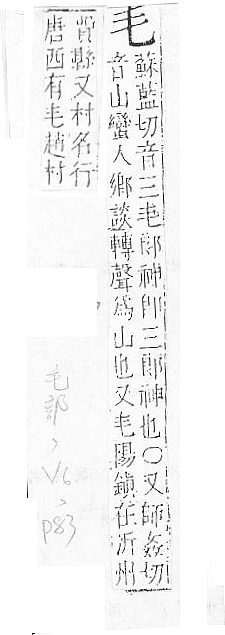 毛
蘇藍切音三毛郎神即三郎神也○又師姦切
音山蠻人鄉談轉聲爲山也又毛陽鎮在沂州
費縣又村名行
唐西有毛趙村
毛部、
V6、
p83